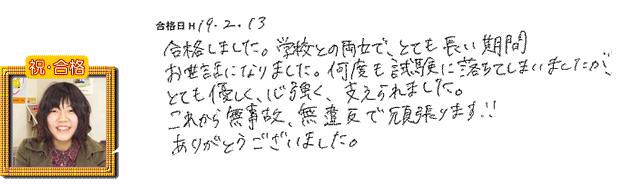 合格日 H 19.2.13
合格しました。学校との両立で、とても長い期間
お世話になりました。何度も試験に落ちてしまいましたが、
とても優しく、心強く、支えられました。
これから無事故、無違反で頑張ります!!
ありがとうございました。
祝・合格